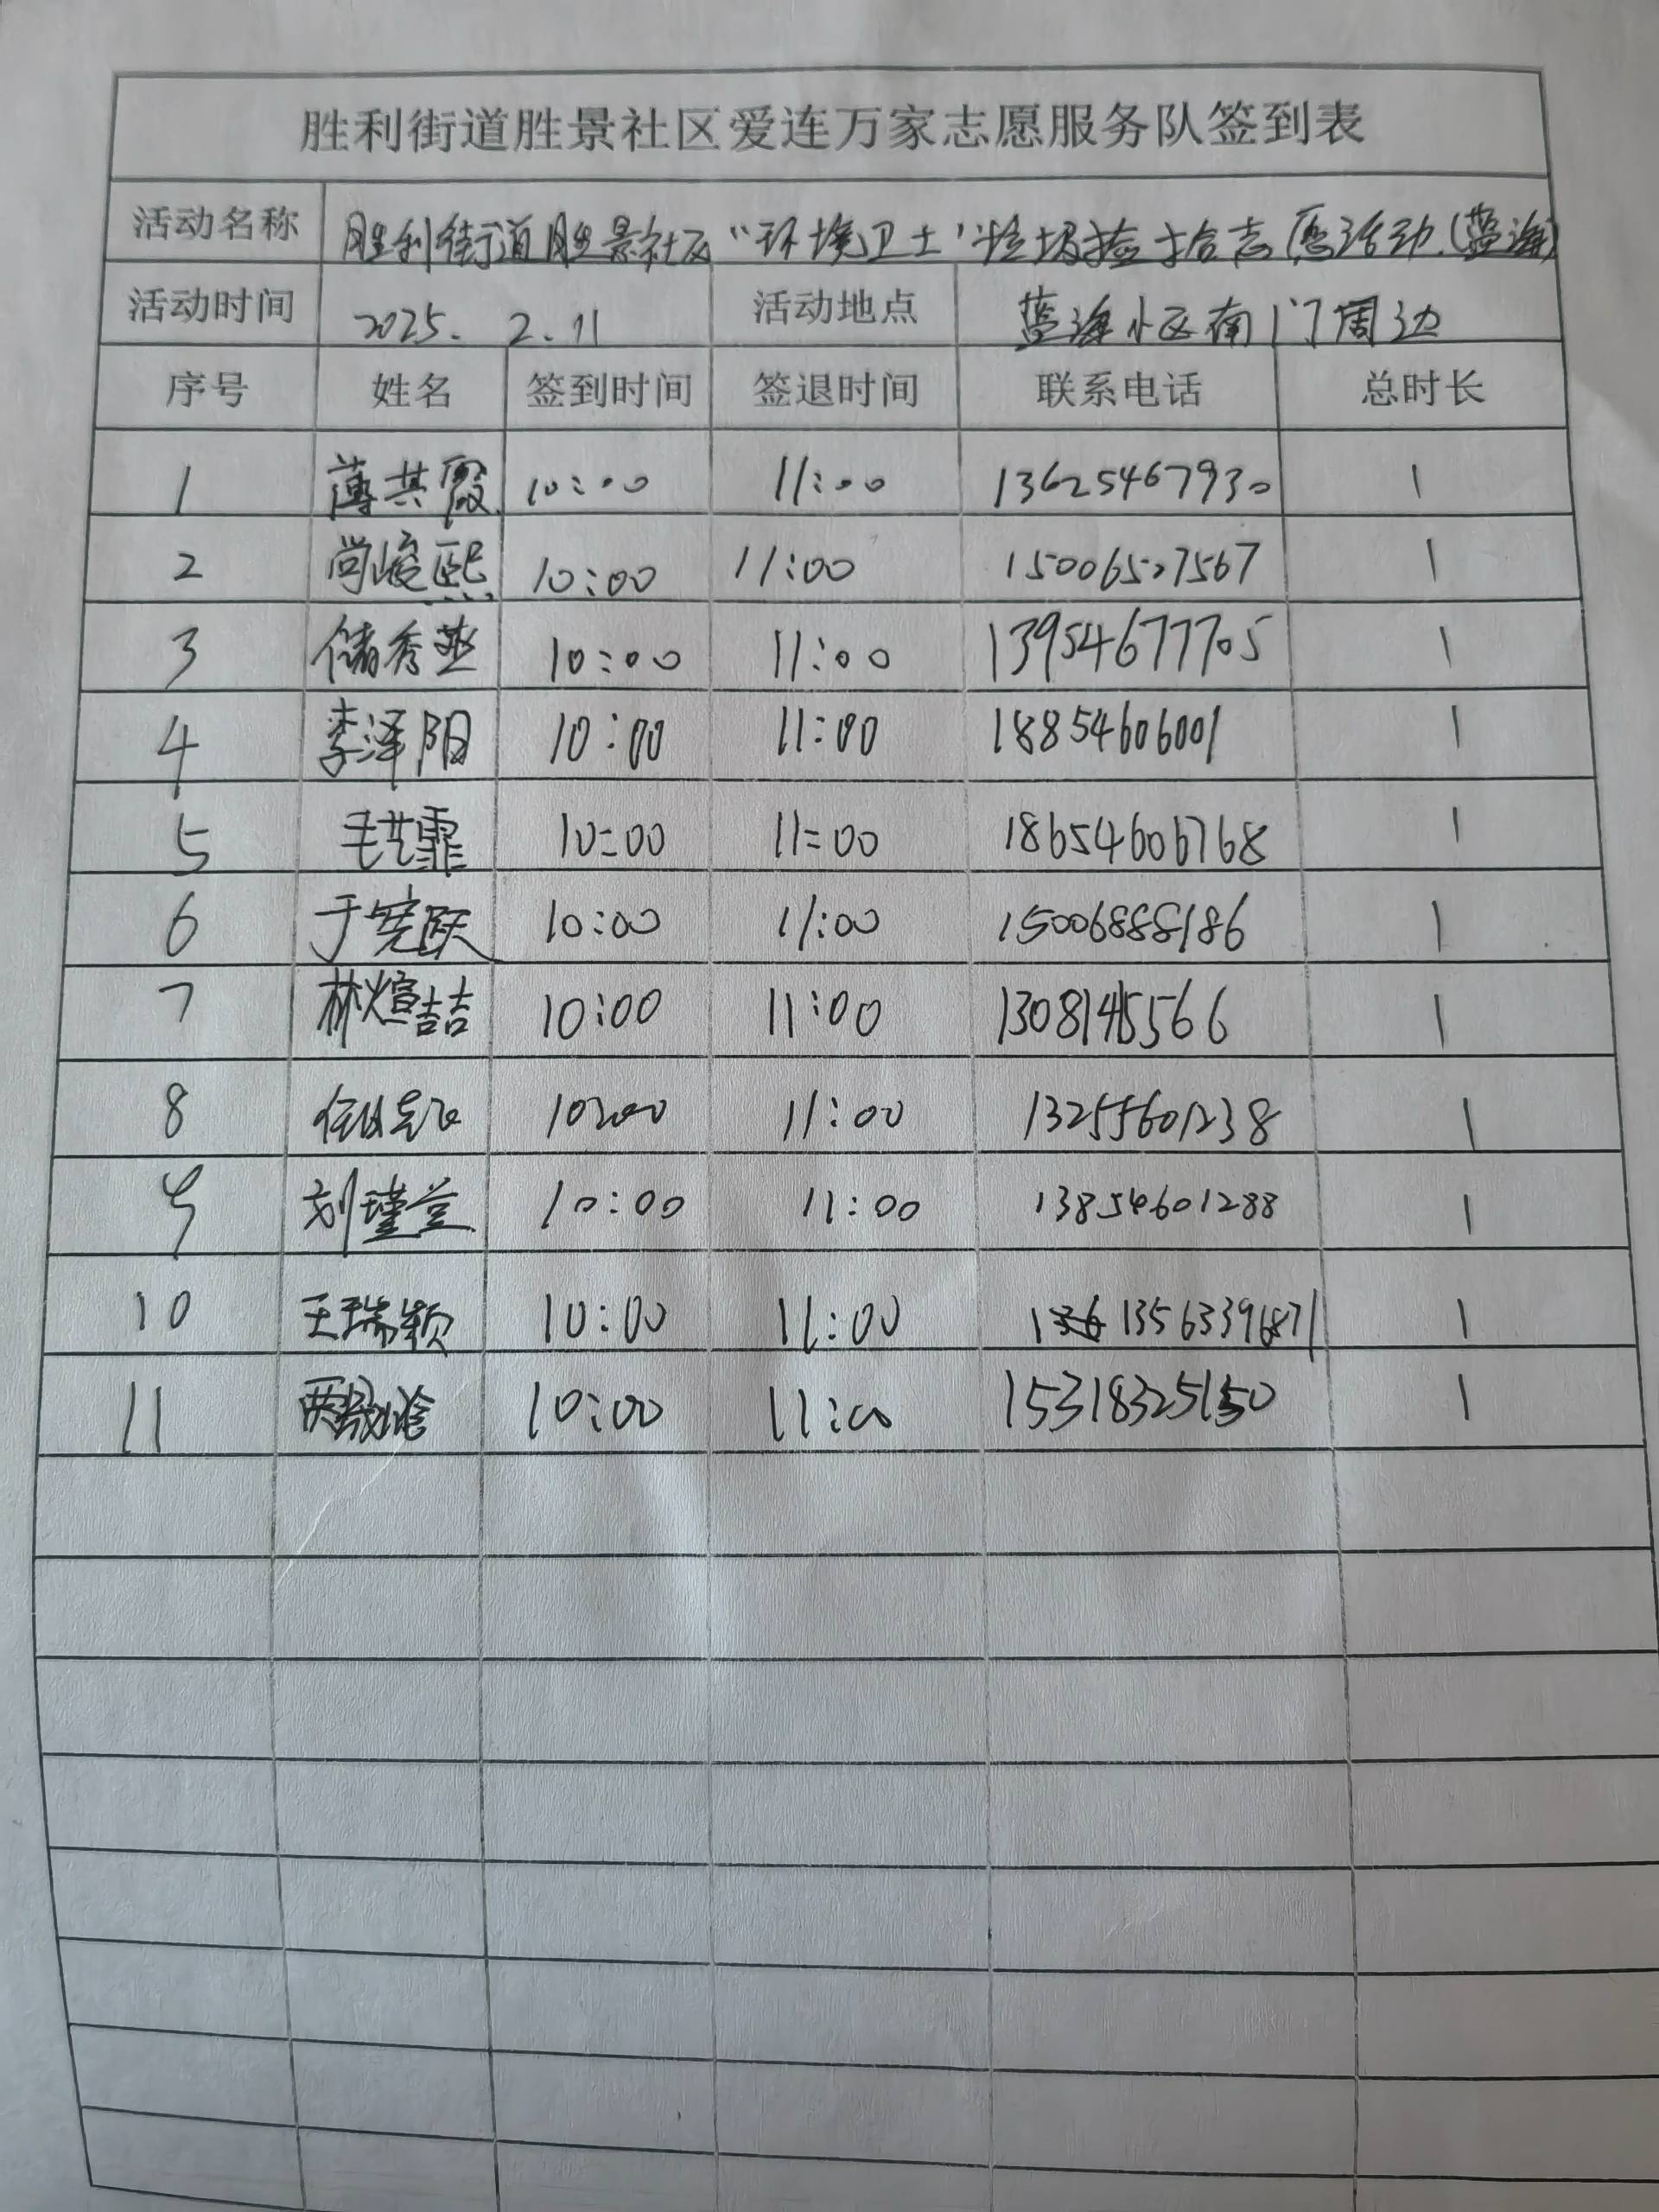 胜利街道胜景社区爱连万家志愿服务队签到表
活动名称 胜利街道胜景社区“环境卫士”垃圾捡拾志愿活动.(蓝海)
活动时间 2025. 2.11 活动地点 蓝海小区南门周边
序号 姓名 签到时间 签退时间 联系电话 总时长
1 薄其霞 10:00 11:00 13625467930 1
2 尚峻熙 10:00 11:00 15006527567 1
3 储秀燕 10:00 11:00 13954677705 1
4 李泽阳 10:00 11:00 18854606001 1
5 毛艺霏 10:00 11:00 18654606768 1
6 于宪跃 10:00 11:00 15006888186 1
7 林煊喆 10:00 11:00 1
8 10:00 11:00 13255601238 1
9 刘瑾萱 10:00 11:00 13854601288 1
10 王瑞颖 10:00 11:00 136 13563396871 1
11 10:00 11:00 15318325150 1